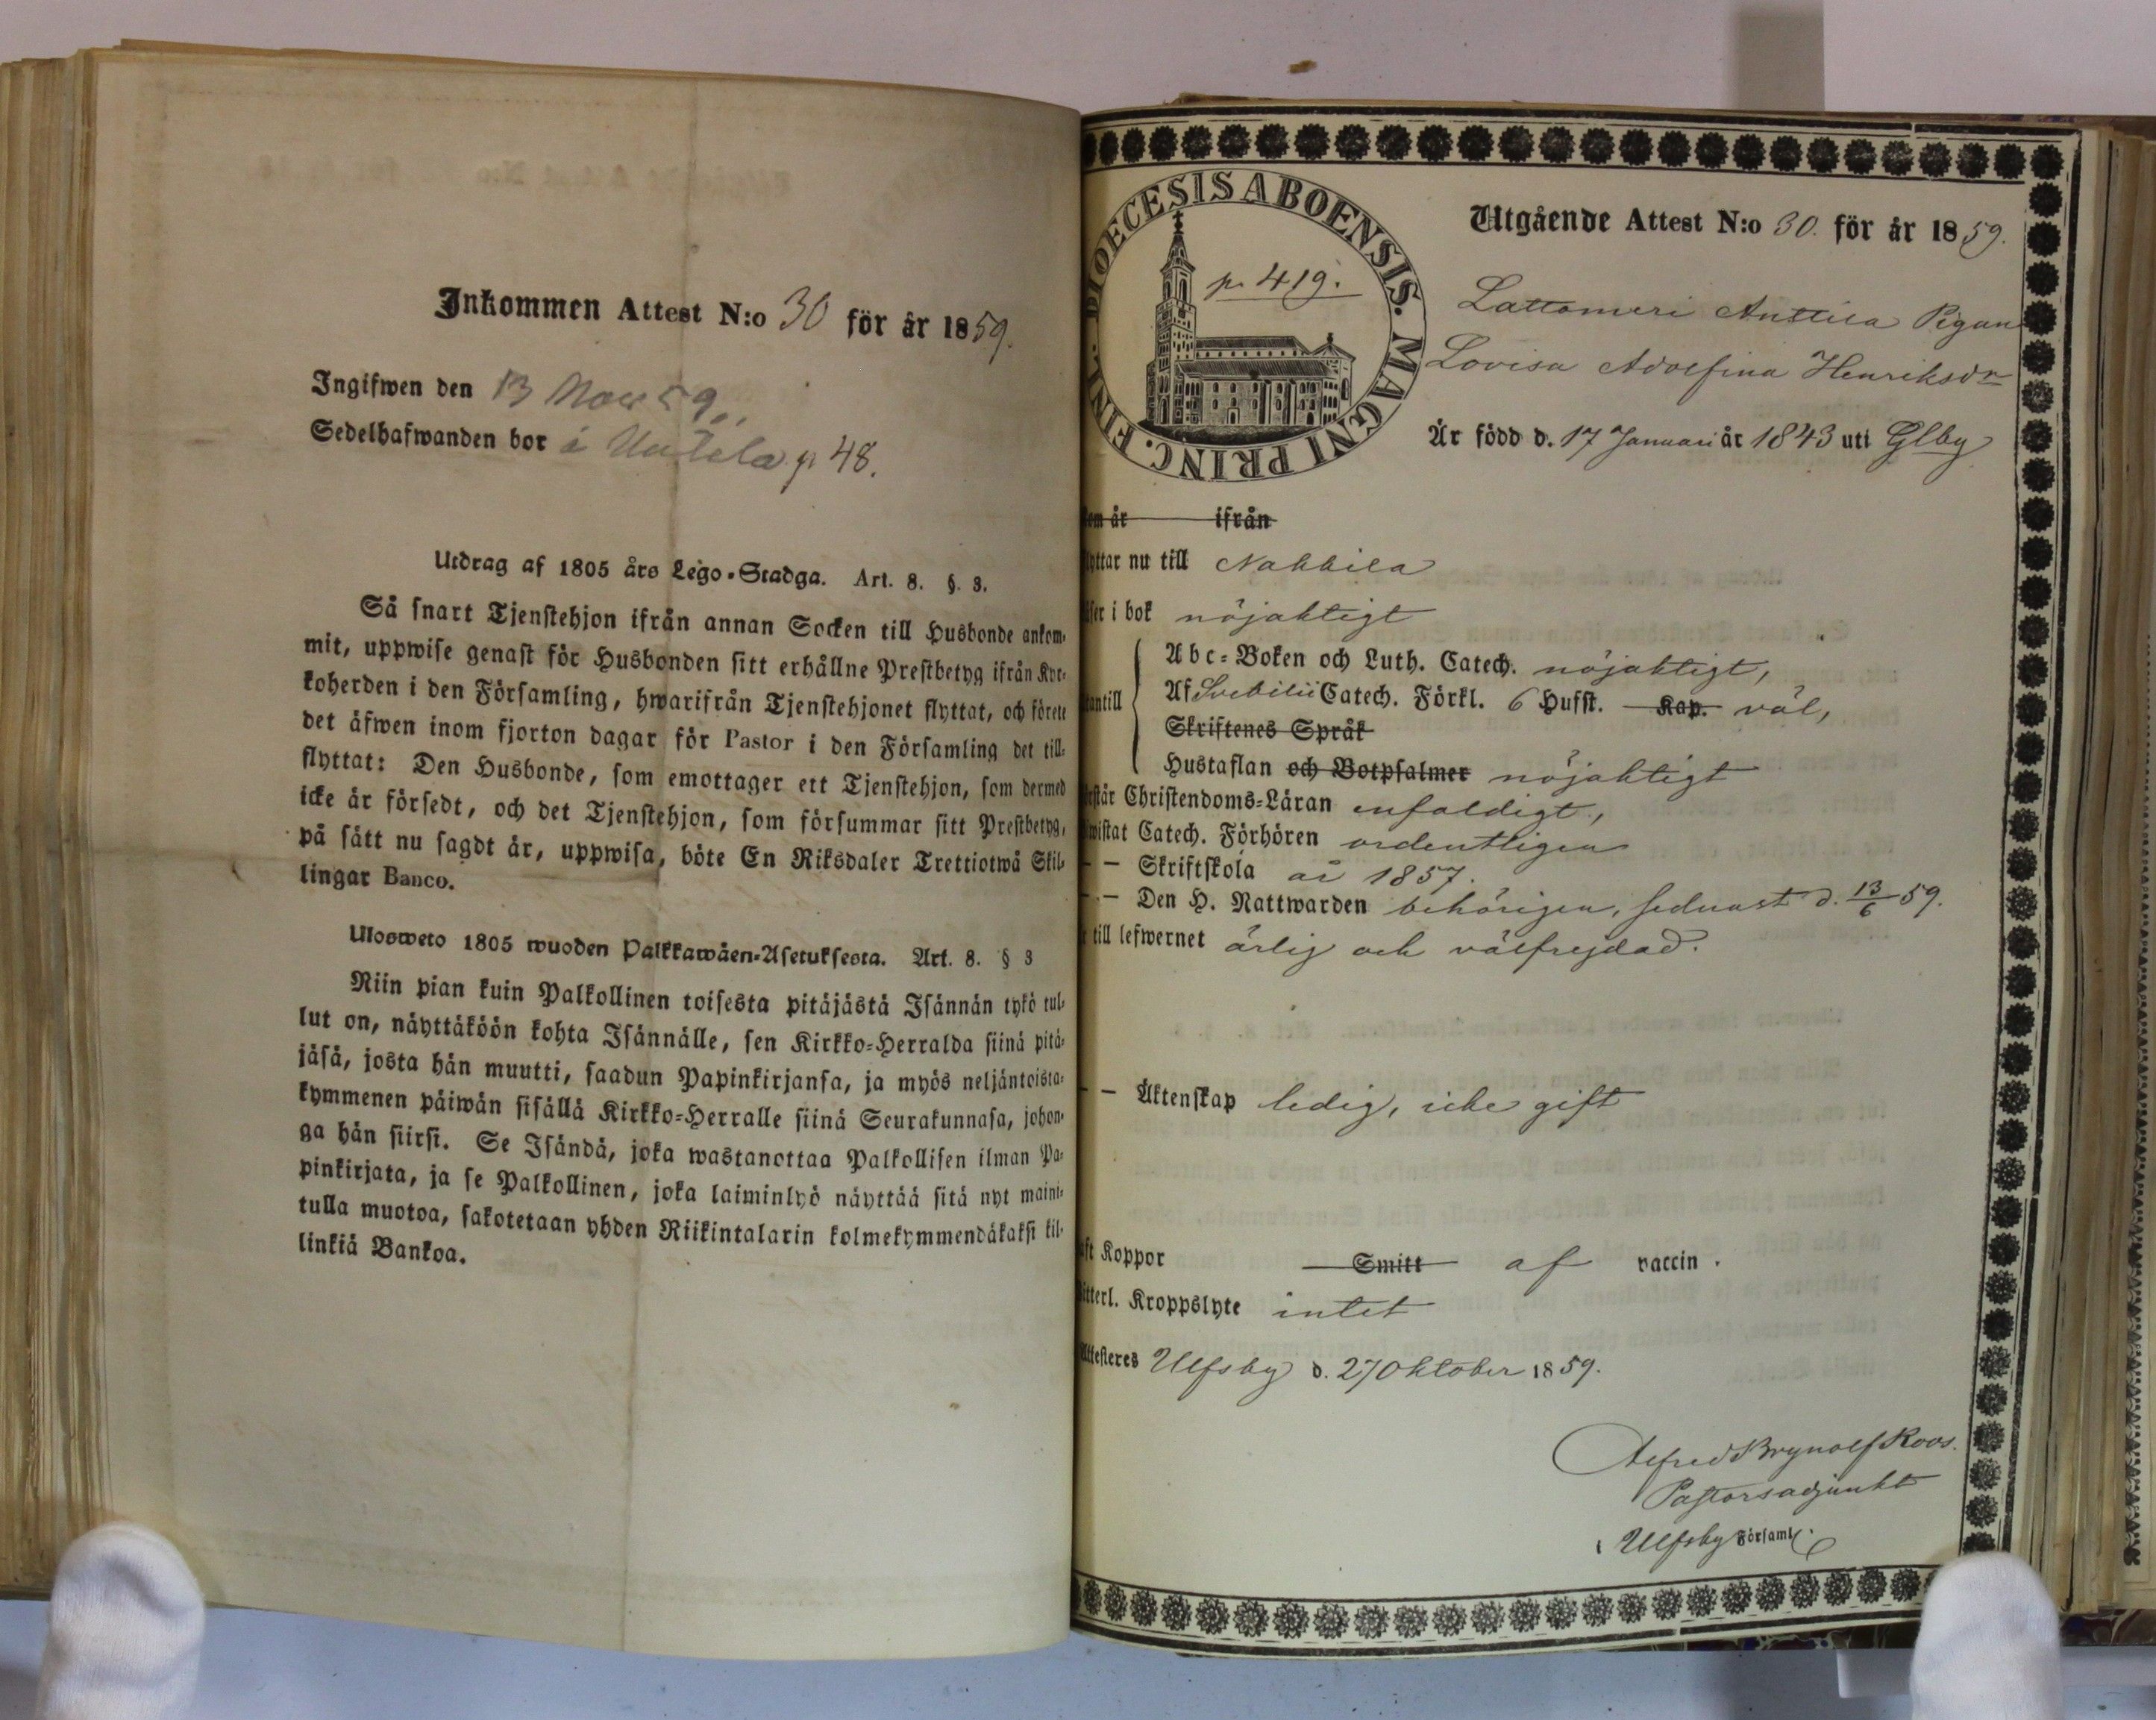 Inkommen Attest N:o 30 för år 1859.
Ingifwen den 13 Nov 59,,
Sedelhafwanden bor å Uutela p 48.
Utdrag af 1805 års Lego-Stadga. Art. 8. §. 3.
Så snart Tjenstehjon ifrån annan Socken till Husbonde ankom-
mit, uppwise genast för Husbonden sitt erhållne Prestbetyg ifrån Kyr-
koherden i den Församling, hwarifrån Tjenstehjonet flyttat, och förete
det äfwen inom fjorton dagar för Pastor i den Församling det till-
flyttat: Den Husbonde, som emottager ett Tjenstehjon, som dermed
icke är försedt, och det Tjenstehjon, som försummar sitt Prestbetyg,
på sätt nu sagdt är, uppwisa, böte En Riksdaler Trettiotwå Skil-
lingar Banco.
Ulosweto 1805 wuoden Palkkawäen-Asetuksesta. Art. 8. § 3
Niin pian kuin Palkollinen toisesta pitäjästä Isännän tykö tul-
lut on, näyttäköön kohta Isännälle, sen Kirkko-Herralda siinä pitä-
jäsä, josta hän muutti, saadun Papinkirjansa, ja myös neljäntoista-
kymmenen päiwän sisällä Kirkko-Herralle siinä Seurakunnasa, johon-
ga hän siirsi. Se Isändä, joka wastanottaa Palkollisen ilman Pa-
pinkirjata, ja se Palkollinen, joka laiminlyö näyttää sitä nyt maini-
tulla muotoa, sakotetaan yhden Riikintalarin kolmekymmendäkaksi kil-
linkiä Bankoa.
DIOECESIS ABOENSIS. MAGNI PRINC. FINL.
p. 419.
Utgående Attest N:o 30. för år 1859.
Lattomeri Anttila Pigan
Lovisa Adolfina Henriksdr
Är född d. 17 Januari år 1843 uti Glby
om år ifrån
yttar nu till Nakkila
äser i bok nöjaktigt
Abc-Boken och Luth. Catech. nöjaktigt,
antill Af Svebilii Catech. Förkl. 6 Hufst. Kap. väl,
Skriftenes Språk
Hustaflan och Botpsalmer nöjaktigt
rstår Christendoms-Läran enfaldigt,
wistat Catech. Förhören ordentligen
— — Skriftskola år 1857.
— — Den H. Nattwarden behörigen, sednast d. 13/6 59.
r till lefwernet ärlig och välfrejdad.
— — Äktenskap ledig, icke gift
aft Koppor Smitt af vaccin.
Witterl. Kroppslyte intet
Attesteres Ulfsby d. 27 Oktober 1859.
Alfred Brynolf Roos.
Pastorsadjunkt
i Ulfsby Församl.